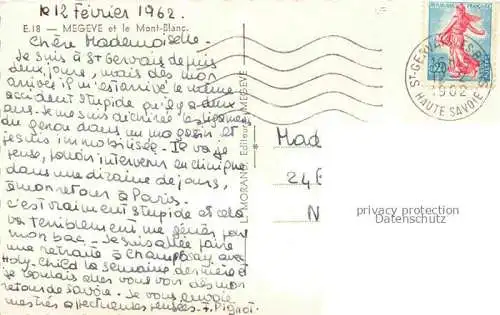 le 12 Février 1962.
E.18 - MEGEVE et le Mont-Blanc.
Chère Mademoiselle.
Je suis à St Gervais depuis
deux jours, mais dès mon
arrivée il m'est arrivé le même
accident stupide qu'il y a deux
ans. Je me suis déchiré les ligaments
du genou dans un magasin et
je suis immobilisée. Il va je
pense, pouvoir intervenir en clinique
dans une dizaine de jours,
à mon retour à Paris.
C'est vraiment stupide et cela
va terriblement me gêner pour
mon bac. Je suis allée faire
une retraite à Champrosay avec
Holy-Child la semaine dernière et
je voulais aller vous voir dès mon
retour de Savoie. Je vous envoie
mes très affectueuses pensées. F. Pignot.
L. MORAND, Editeur, MEGEVE
Mad
24 B
N
privacy protection
Datenschutz
ST-GERVAIS-LES-BAINS
1962
HAUTE SAVOIE
0,20